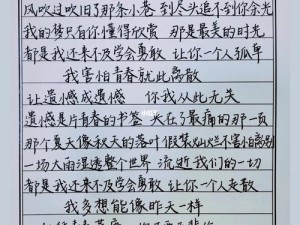 风吹过吹旧了那条小巷 到尽头追不到你余光
我的梦只有你懂得欣赏 那是最美的时光
都是我还来不及学会勇敢 让你一个人孤单
我害怕青春就此离散
让遗憾成遗憾 你我从此无关
遗憾是片青春的书签 夹在了最痛的那一页
那个夏天像秋天的落叶 假装灿烂不害怕离别
一场大雨湿透整个世界 流逝我们的一切
都是我还来不及学会勇敢 让你一个人走散
我多想能像昨天一样